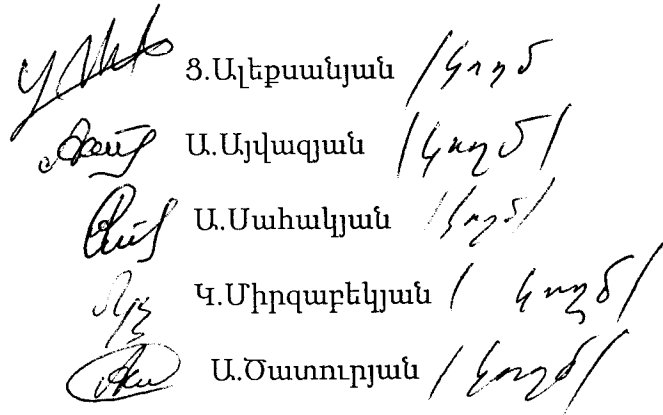 Ց.Ալեքսանյան /կողմ
Ա.Այվազյան /կողմ/
Ա.Սահակյան /կողմ/
Կ.Միրզաբեկյան / կողմ/
Ա.Ծատուրյան /կողմ/